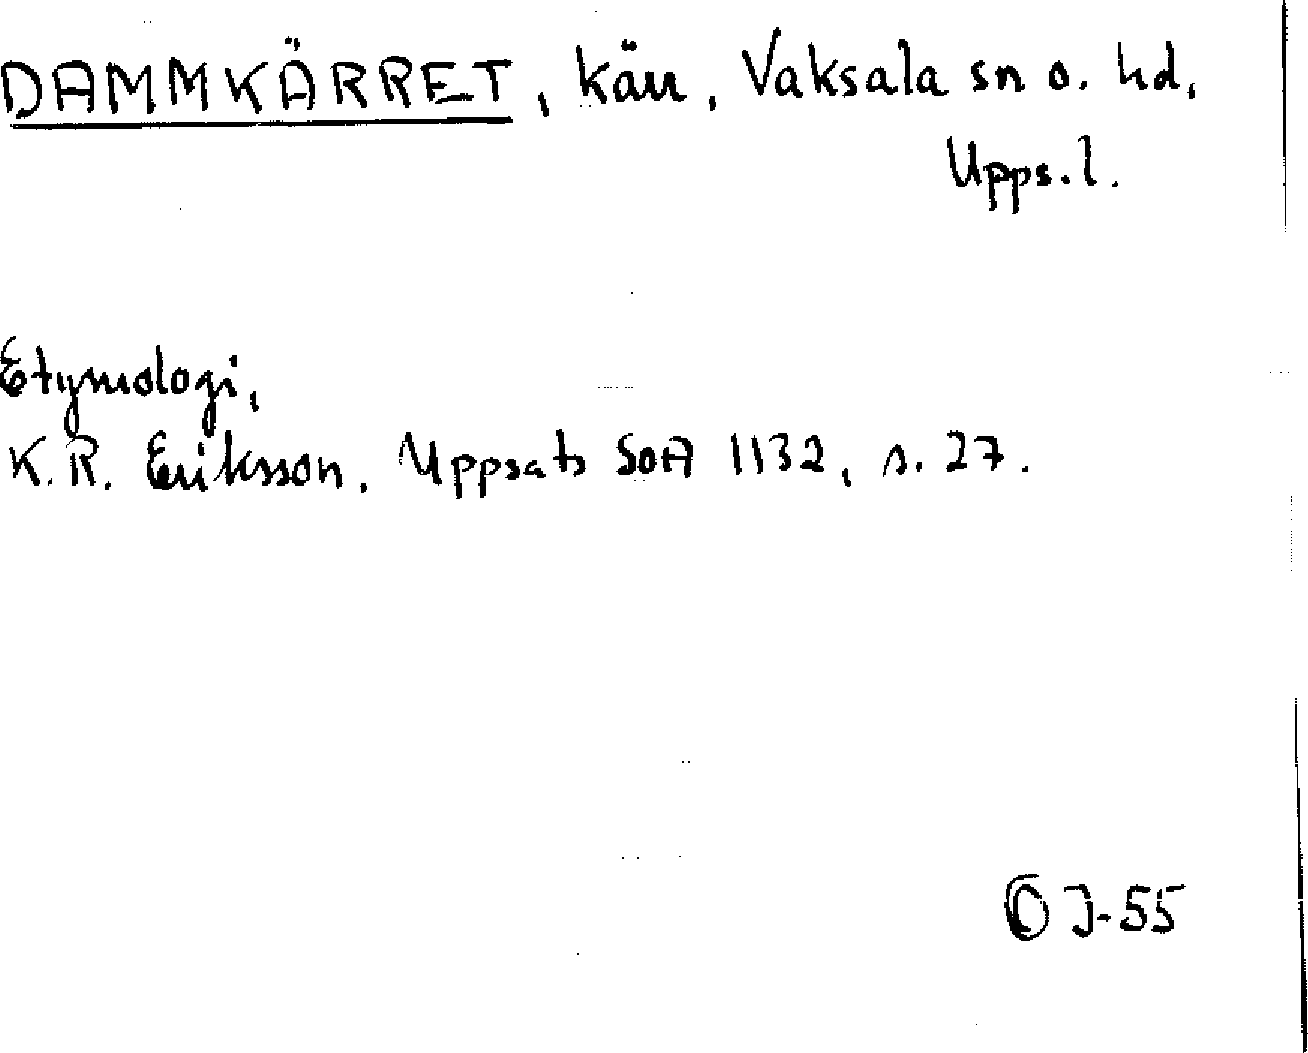 DAMMKÄRRET, kärr, Vaksala sn o. hd,
Upps. l.
Etymologi,
K.R. Eriksson. Uppsats SOA 1132, s. 27.
OJ-55